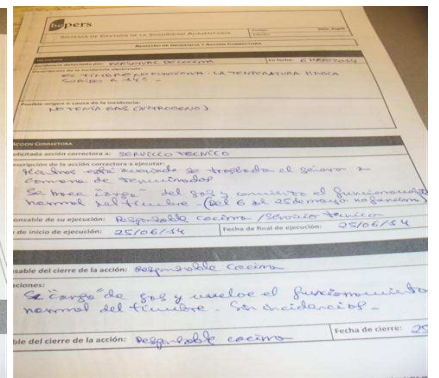 bepers
SISTEMA DE GESTIÓN DE LA SEGURIDAD ALIMENTARIA
REGISTRO DE INCIDENCIA Y ACCIÓN CORRECTORA
Incidencia detectada por: PERSONAL DE COCINA
En fecha: 6 MAYO 2014
Descripción de la incidencia detectada:
EL TIMBRE NO FUNCIONA. LA TEMPERATURA HABIA
SUBIDO A
Posible origen o causa de la incidencia:
NO TENIA GAS
ACCIÓN CORRECTORA
solicitada acción correctora a: SERVICIO TECNICO
descripción de la acción correctora a ejecutar:
Mientras está averiado se traslada el género a
camara de
Se hace "carga" del gas y comienza el funcionamiento
normal del timbre. (Del 6 al 25 de mayo no funciona)
onsable de su ejecución: Responsable cocina / Servicio tecnico
de inicio de ejecución: 25/06/14
Fecha de final de ejecución: 25/06/14
nsable del cierre de la acción: Responsable Cocina
ciones:
Se "carga" de gas y vuelve el funcionamiento
normal del timbre. Sin incidencias.
ble del cierre de la acción: Responsable cocina
Fecha de cierre: 25